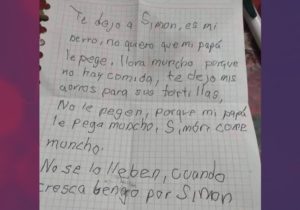 Te dejo a Simon, es mi
perro, no quiero que mi papá
le pege, llora muncho porque
no hay comida, te dejo mis
aorros para sus tortillas,
No le pegen, porque mi papá
le pega muncho, Simón come
muncho.
No se lo lleben, cuando
cresca bengo por Simon